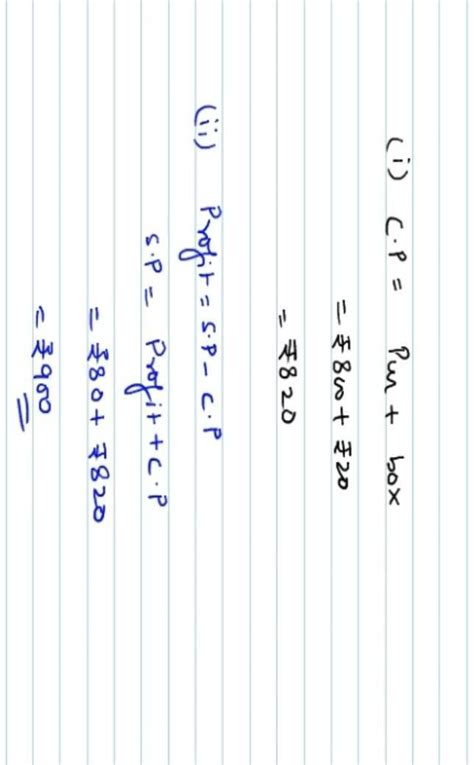 (i) C.P = Pen + box
= ₹800 + ₹20
= ₹820
(ii) Profit = S.P - C.P
S.P = Profit + C.P
= ₹80 + ₹820
= ₹900